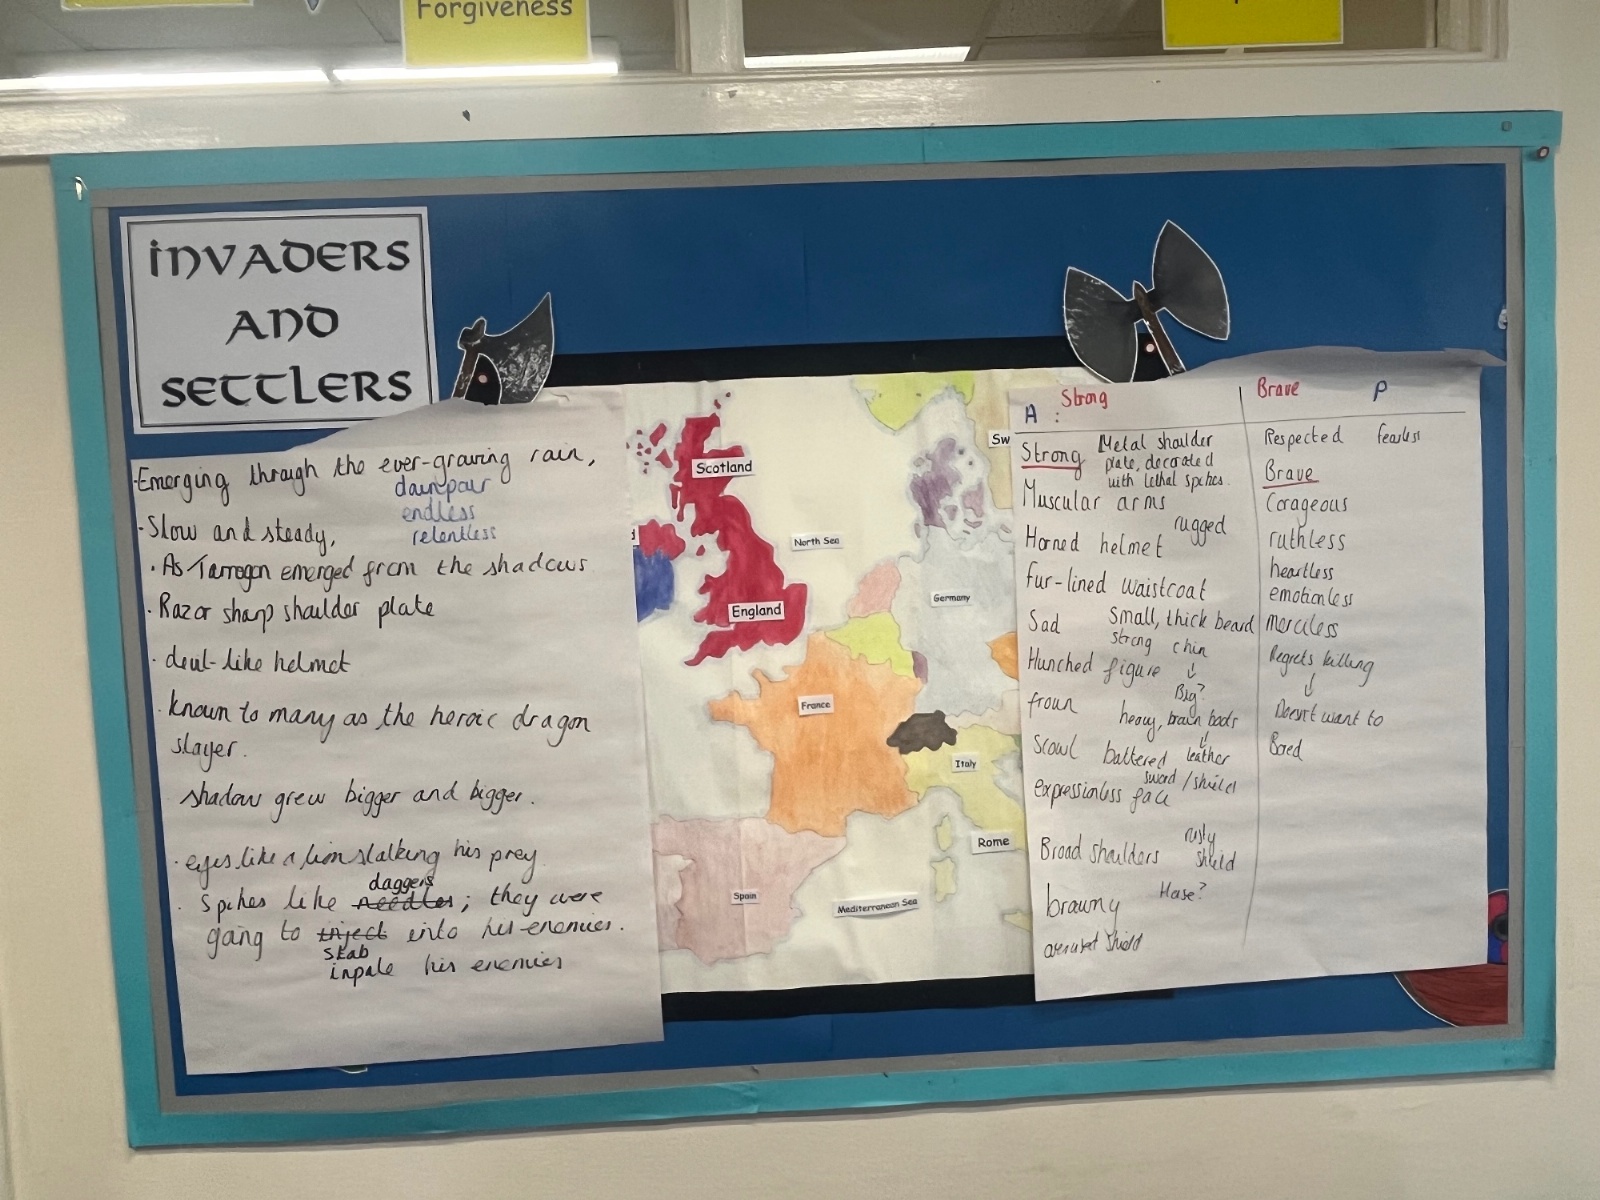 Forgiveness
INVADERS
AND
SETTLERS
·Emerging through the ever-growing rain,
downpour
endless
relentless
·Slow and steady,
·As Tarragon emerged from the shadows
·Razor sharp shoulder plate
·devil-like helmet
·known to many as the heroic dragon
slayer.
shadow grew bigger and bigger.
·eyes like a lion stalking his prey.
daggers
·Spikes like needles; they were
going to inject into his enemies.
stab
inpale his enemies
Scotland
North Sea
England
Germany
France
Italy
Rome
Spain
Mediterranean Sea
Sw
A :
Strong
Strong
Metal shoulder
plate, decorated
with lethal spikes.
Muscular arms
rugged
Horned helmet
fur-lined waistcoat
Sad
Small, thick beard
strong chin
Hunched figure
Big?
frown
heavy, brown boots
Scowl
battered
leather
sword / shield
expressionless face
Broad shoulders
rusty
shield
brawny
Horse?
shield
Brave
P
Respected
fearless
Brave
Corageous
ruthless
heartless
emotionless
merciless
Regrets killing
Doesn't want to
Bored